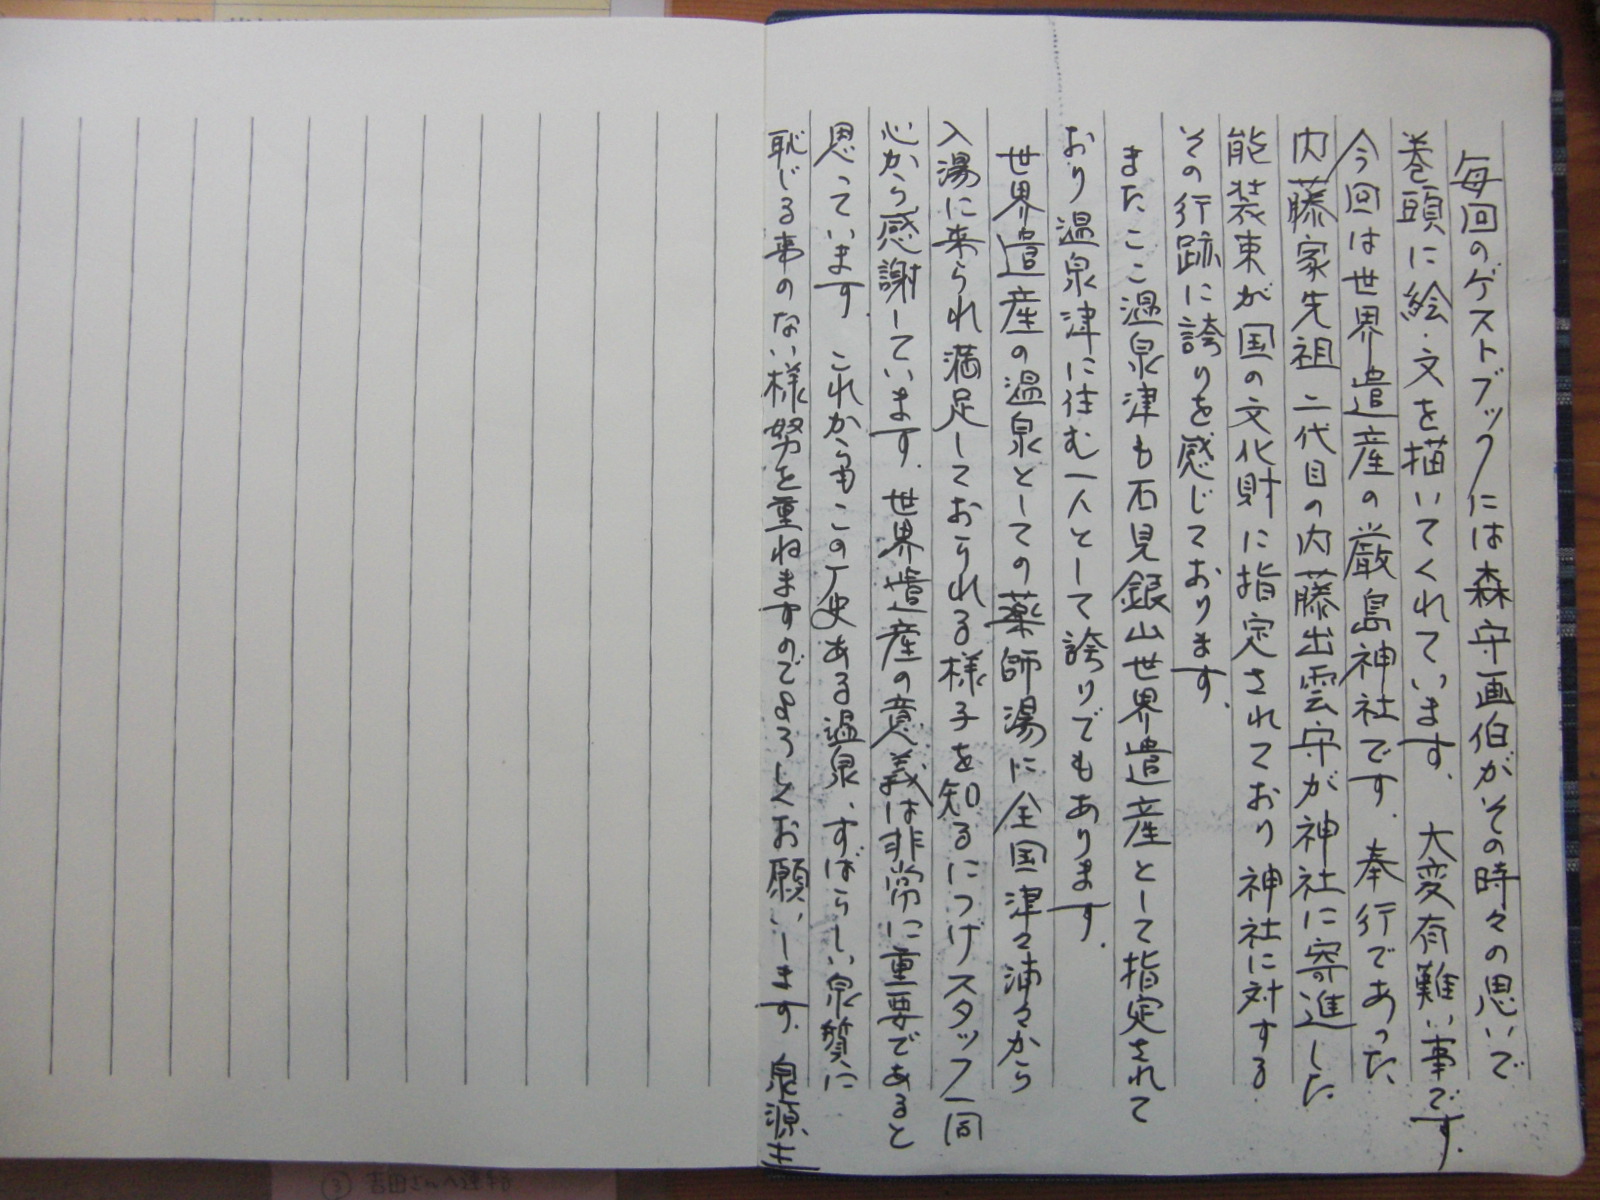 毎回のゲストブックには森守画伯がその時々の思いで
巻頭に絵・文を描いてくれています。 大変有難い事です。
今回は世界遺産の厳島神社です。奉行であった
内藤家先祖 二代目の内藤出雲守が神社に寄進した
能装束が国の文化財に指定されており 神社に対する
その行跡に誇りを感じております。
またここ温泉津も石見銀山世界遺産として指定されて
おり 温泉津に住む一人として誇りでもあります。
世界遺産の温泉としての薬師湯に全国津々浦々から
入湯に来られ満足しておられる様子を知るにつけスタッフ一同
心から感謝しています。世界遺産の意義は非常に重要であると
思っています。 これからもこの歴史ある温泉、すばらしい泉質に
恥じる事のない様努を重ねますのでよろしくお願いします。 泉源主